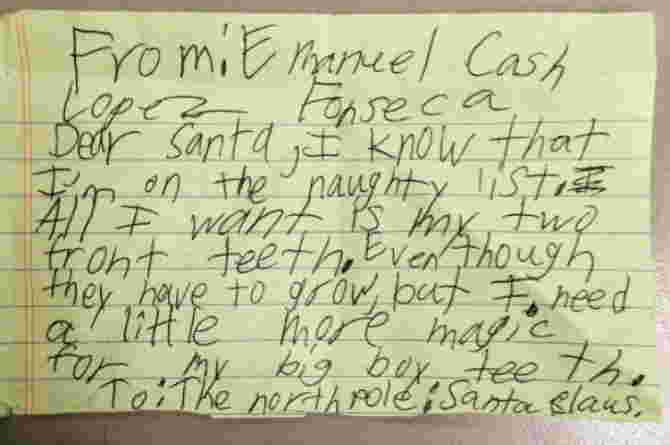 From: Emanuel Cash
Lopez Fonseca
Dear Santa, I know that
I'm on the naughty list.
All I want is my two
front teeth. Even though
they have to grow, but I need
a little more magic
for my big boy teeth.
To: The north pole: Santa Claus.